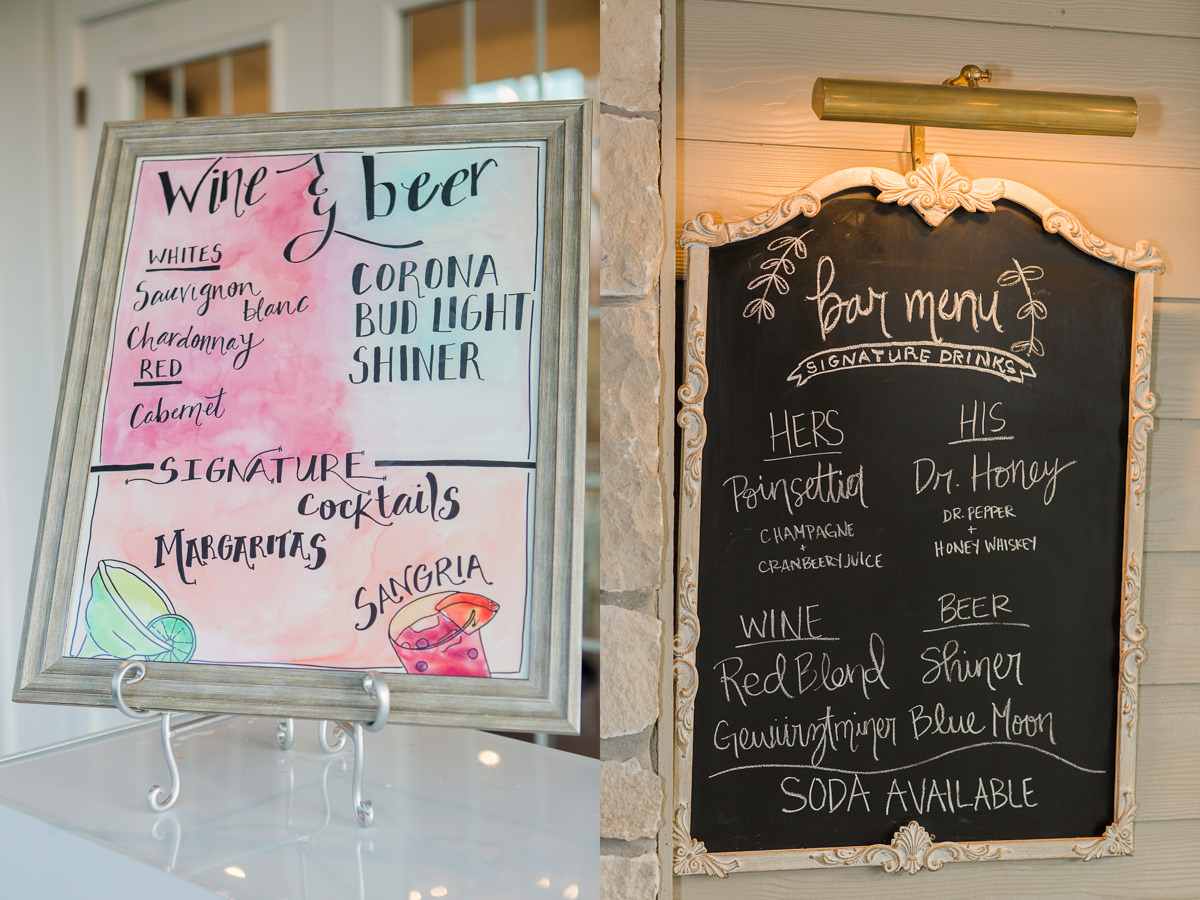 Wine & beer
WHITES
Sauvignon
blanc
Chardonnay
RED
Cabernet
CORONA
BUD LIGHT
SHINER
SIGNATURE
Cocktails
MARGARITAS
SANGRIA
bar menu
SIGNATURE DRINKS
HERS
Poinsettia
CHAMPAGNE
+
CRANBEERY JUICE
HIS
Dr. Honey
DR. PEPPER
+
HONEY WHISKEY
WINE
Red Blend
Gewürztminer
BEER
Shiner
Blue Moon
SODA AVAILABLE